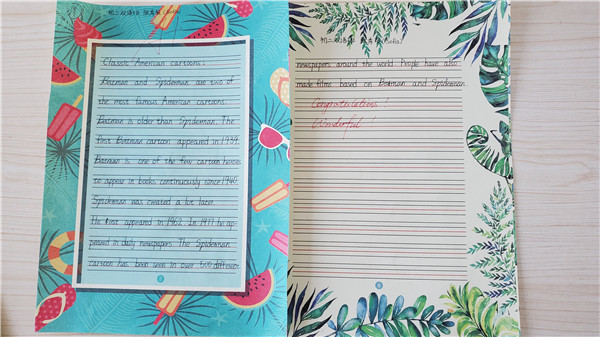 初二双语1班
Classic American cartoons.
Batman and Spiderman are two of
the most famous American cartoons.
Batman is older than Spiderman. The
first Batman cartoon appeared in 1939.
Batman is one of the few cartoon heroes
to appear in books continuously since 1940.
Spiderman was created a lot later.
He first appeared in 1962. In 1977 he ap-
peared in daily newspapers. The Spiderman
cartoon has been seen in over 500 different
初二双语1班
newspapers around the world. People have also
made films based on Batman and Spiderman.
Congratulations!
Wonderful!